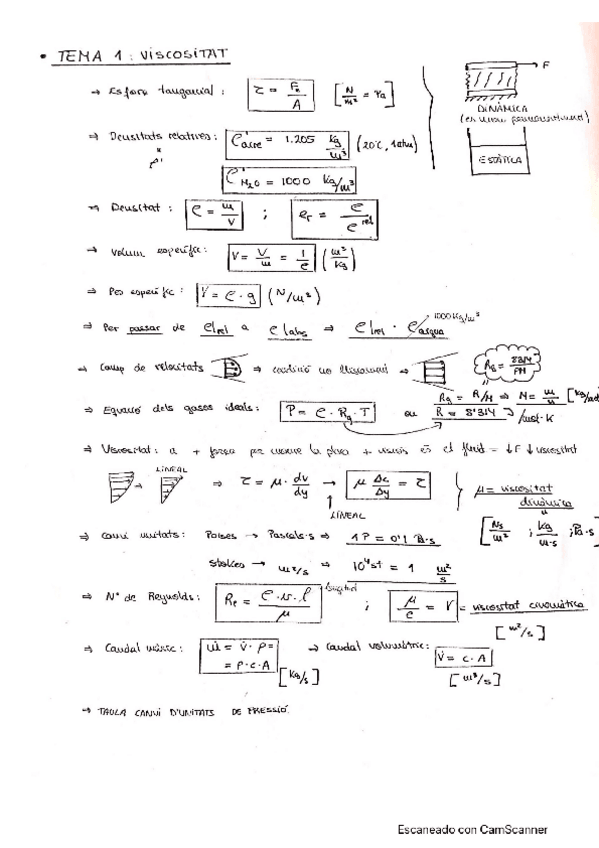 • TEMA 1: VISCOSITAT
→ Esforç tangencial: τ = Fx / A [N/m² = Pa]
F
DINÀMICA
⇒ Densitats relatives: ρ'aire = 1.205 kg/m³ (20°C, 1atm)
ρ'
ESTÀTICA
ρ'H2O = 1000 kg/m³
→ Densitat: ρ = m/V ; ρr = ρ/ρ rel
→ Volum específic: V = V/m = 1/ρ (m³/kg)
⇒ Pes específic: γ = ρ · g (N/m³)
⇒ Per passar de ρrel a ρabs ⇒ ρrel · ρaigua 1000 kg/m³
→ Camp de velocitats ⇒ condició no lliscament ⇒
Rg = 8314/PM
⇒ Equació dels gasos ideals: P = ρ · Rg · T ou Rg = R/M ⇒ M = m/n
R = 8'314 J/mol·K
⇒ Viscositat: a + força per moure la placa + viscós és el fluid = ↓F ↓viscositat
LINEAL
⇒ τ = μ · dv/dy → μ Δc/Δy = τ
LINEAL
μ = viscositat dinàmica
[Ns/m² ; kg/m·s ; Pa·s]
⇒ Canvi unitats: Poises → Pascals·s ⇒ 1P = 0'1 Pa·s
stokes → m²/s ⇒ 10⁴st = 1 m²/s
⇒ Nº de Reynolds: Re = ρ · v · l / μ longitud ; μ/ρ = ν = viscositat cinemàtica
[m²/s]
⇒ Caudal màssic: ṁ = V̇ · ρ = → Caudal volumètric: V̇ = c · A
= ρ·c·A [kg/s] [m³/s]
→ TAULA CANVI D'UNITATS DE PRESSIÓ.
Escaneado con CamScanner